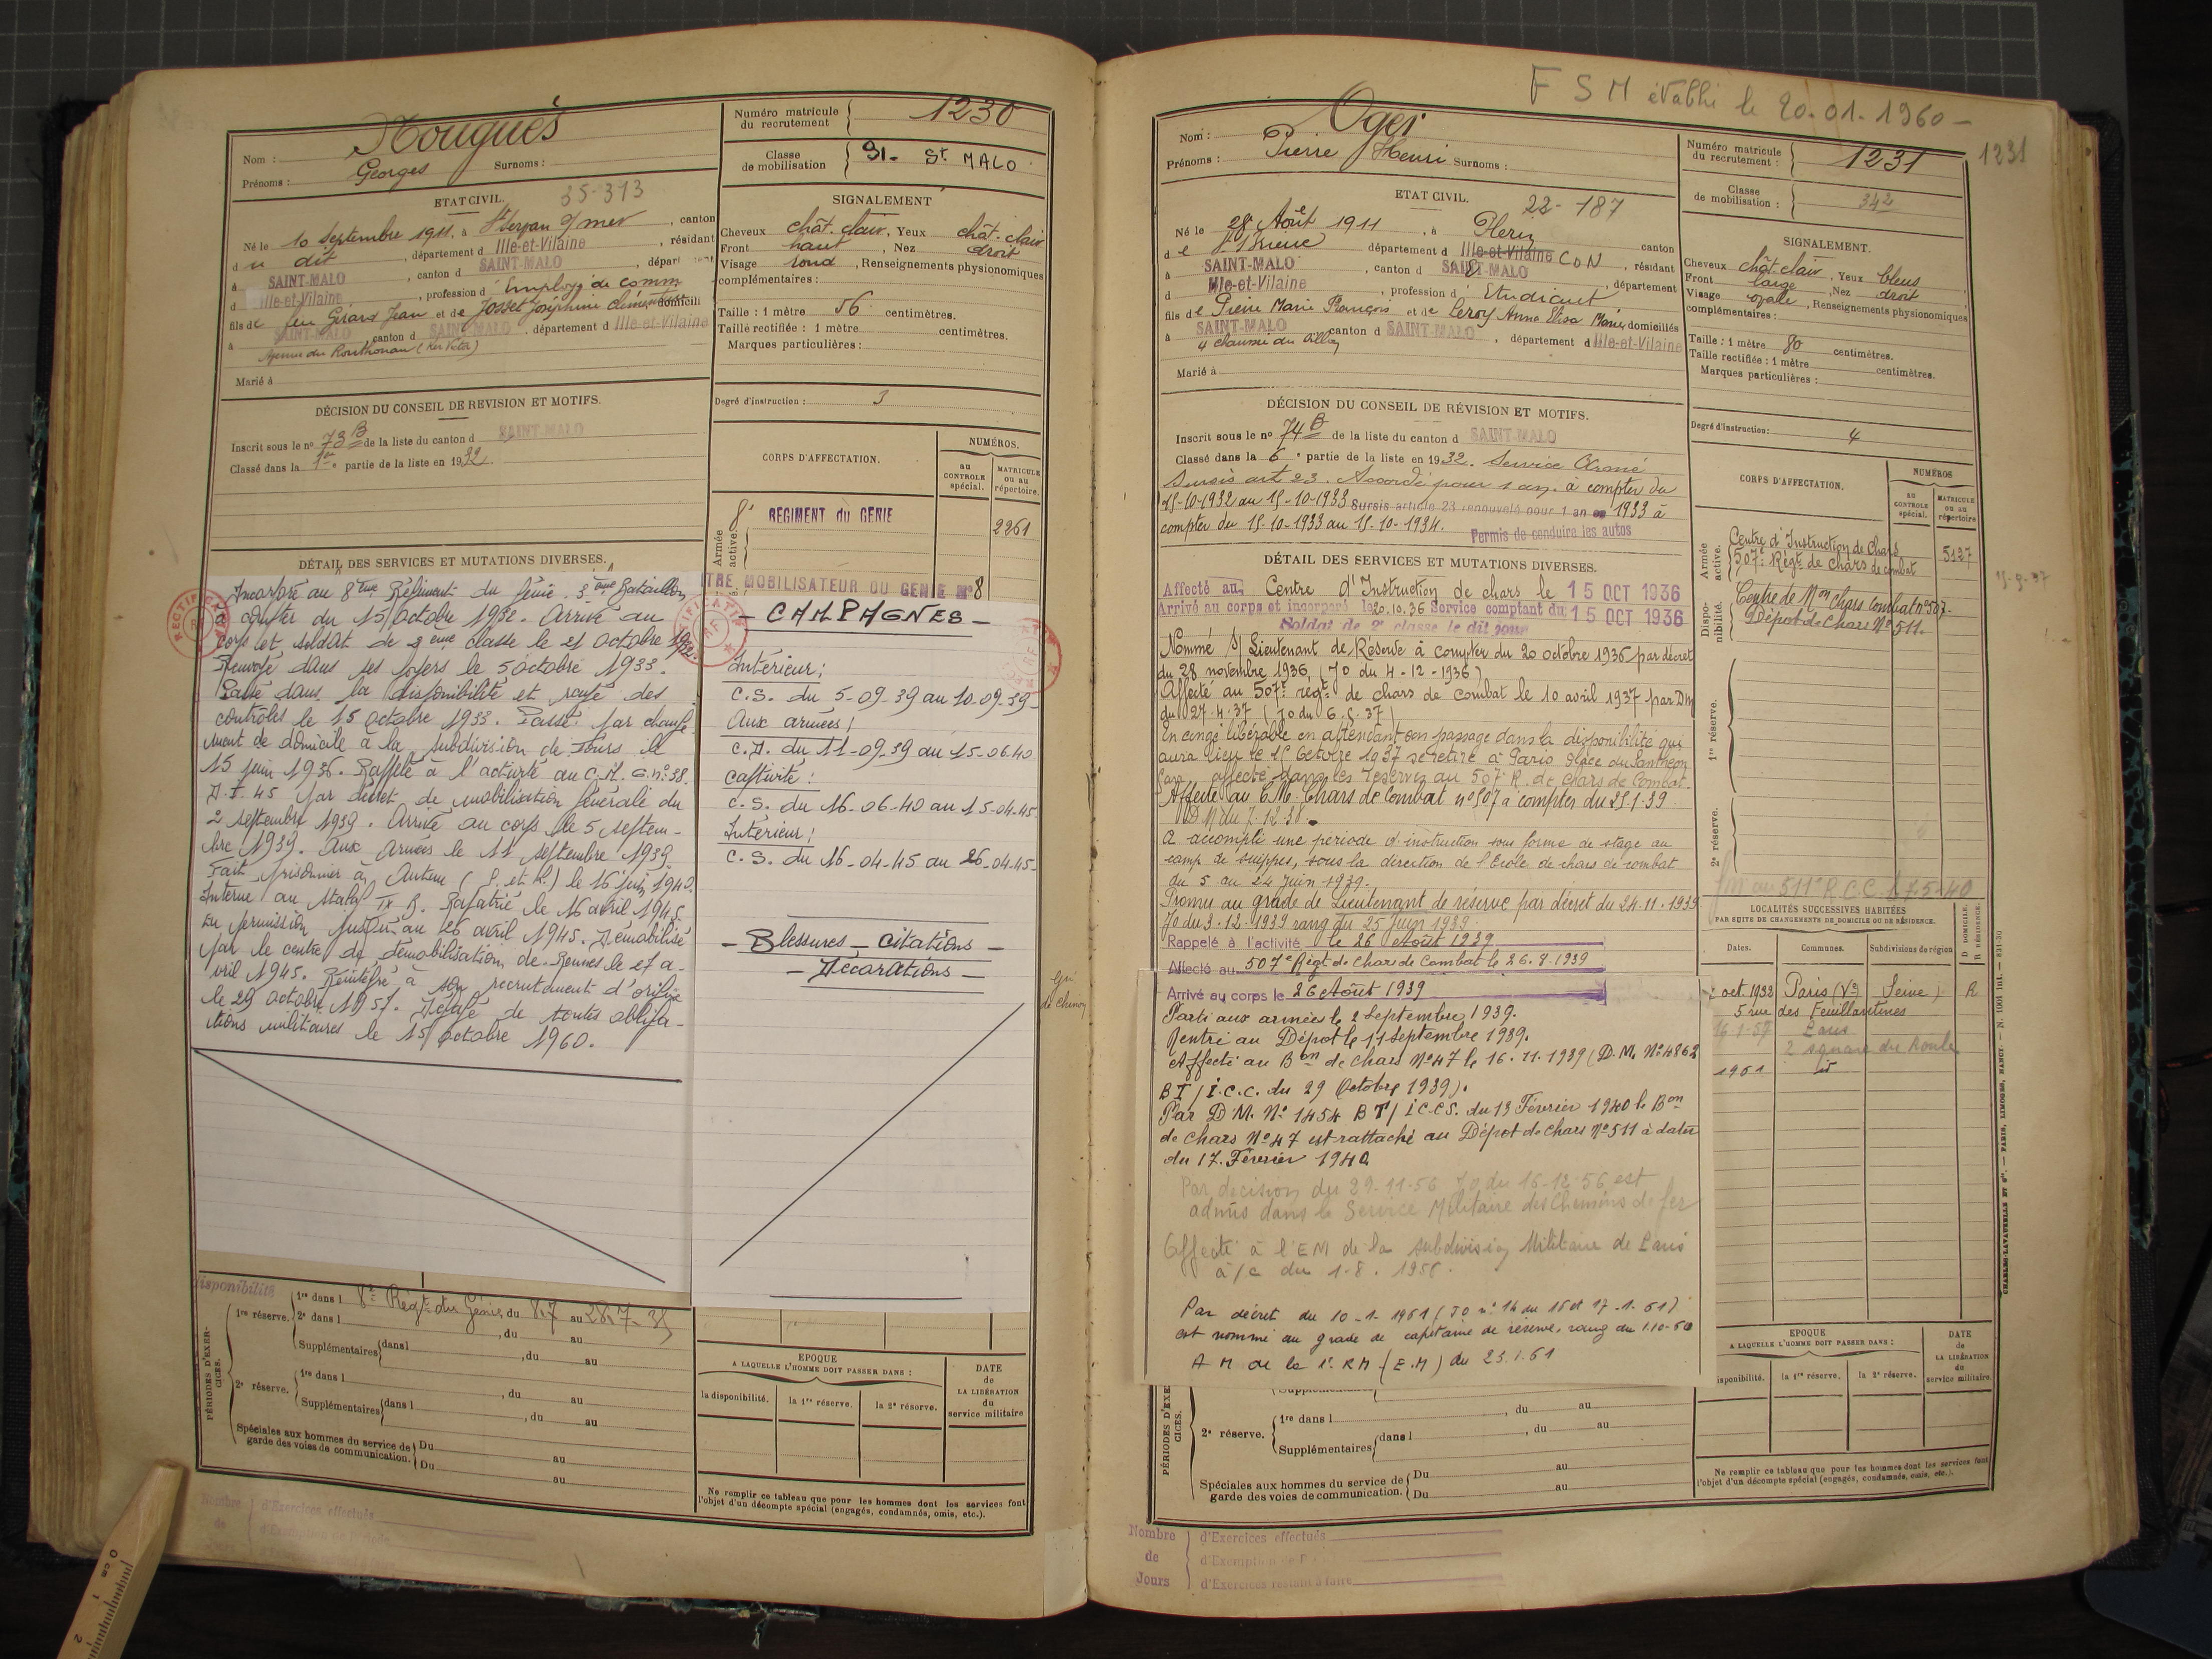 Nouguès
Nom :
Prénoms : Georges Surnoms :
Numéro matricule du recrutement 1230
Classe de mobilisation 31 - St MALO
ETAT CIVIL. 35-313
Né le 10 Septembre 1911, à St Servan s/mer, canton
du dit, département d Ille-et-Vilaine, résidant
à SAINT-MALO, canton d SAINT-MALO, départ
d Ille-et-Vilaine, profession d' Employé de comm
fils de feu Girard Jean et de Josset Joséphine domicili
à SAINT-MALO canton d SAINT-MALO, département d Ille-et-Vilaine
Avenue du (Ker Victor)
Marié à
SIGNALEMENT
Cheveux chât. clair, Yeux chât. clair
Front haut, Nez droit
Visage rond, Renseignements physionomiques
complémentaires :
Taille : 1 mètre 56 centimètres.
Taille rectifiée : 1 mètre centimètres.
Marques particulières :
Degré d'instruction : 3
DÉCISION DU CONSEIL DE REVISION ET MOTIFS.
Inscrit sous le no 73 B de la liste du canton d SAINT-MALO
Classé dans la 1re partie de la liste en 1932.
CORPS D'AFFECTATION.
NUMÉROS.
au CONTROLE spécial.
MATRICULE ou au répertoire.
Armée active.
8e REGIMENT du GENIE 2261
TRE MOBILISATEUR DU GENIE No 8
DÉTAIL DES SERVICES ET MUTATIONS DIVERSES.
Incorporé au 8ème Régiment du Génie. 3ème Bataillon
à compter du 15 octobre 1932. Arrivé au
corps et soldat de 2ème classe le 21 octobre 1932.
Renvoyé dans ses foyers le 5 octobre 1933.
Passé dans la disponibilité et rayé des
contrôles le 15 octobre 1933. Passé par change-
ment de domicile à la subdivision de Tours le
15 juin 1936. Rappelé à l'activité au C.M.G. no 38.
D.I 45 par décret de mobilisation générale du
2 septembre 1939. Arrivé au corps le 5 septem-
bre 1939. Aux Armées le 11 septembre 1939.
Fait prisonnier à Autun (S. et L.) le 16 juin 1940.
Interné au Stalag IX B. Rapatrié le 16 avril 1945.
En permission jusqu'au 26 avril 1945. Démobilisé
par le centre de démobilisation de Rennes le 27 a-
vril 1945. Réintégré à son recrutement d'origine
le 29 octobre 1957. Dégagé de toutes obliga-
tions militaires le 15 octobre 1960.
- CAMPAGNES -
Intérieur :
C.S. du 5-09-39 au 10-09-39-
Aux armées :
C.D. du 11-09-39 au 15-06-40
Captivité :
C.S. du 16-06-40 au 15-04-45-
Intérieur :
C.S. du 16-04-45 au 26-04-45-
- Blessures - citations -
- Décorations -
de Chinon
disponibilité
PÉRIODES D'EXERCICES.
1re réserve. 1re dans l 8e Régt du Génie, du 8.7 au 28.7-35
2e dans l , du au
Supplémentaires dans l , du au
2e réserve. 1re dans l , du au
Supplémentaires dans l , du au
Spéciales aux hommes du service de garde des voies de communication. Du au
Du au
EPOQUE
A LAQUELLE L'HOMME DOIT PASSER DANS :
la disponibilité. la 1re réserve. la 2e réserve.
DATE de LA LIBÉRATION du service militaire
Ne remplir ce tableau que pour les hommes dont les services font
l'objet d'un décompte spécial (engagés, condamnés, omis, etc.).
Nombre de
d'Exercices effectués
F S M établi le 20-01-1960-
Oger
Nom :
Prénoms : Pierre Henri Surnoms :
Numéro matricule du recrutement : 1231
1231
Classe de mobilisation : 34 2
ETAT CIVIL. 22-187
Né le 28 Août 1911, à Plérin canton
de St Brieuc département d Ille-et-Vilaine C d N, résidant
à SAINT-MALO, canton d SAINT-MALO, département
d Ille-et-Vilaine, profession d Etudiant
fils de Pierre Marie François et de Leroy Anna Elisa Marie, domiciliés
à SAINT-MALO canton d SAINT-MALO, département d Ille-et-Vilaine
4 chaussée du Sillon
Marié à
SIGNALEMENT.
Cheveux chât. clair, Yeux bleus
Front large, Nez droit
Visage ovale, Renseignements physionomiques
complémentaires :
Taille : 1 mètre 80 centimètres.
Taille rectifiée : 1 mètre centimètres.
Marques particulières :
Degré d'instruction : 4
DÉCISION DU CONSEIL DE RÉVISION ET MOTIFS.
Inscrit sous le no 74 B de la liste du canton d SAINT-MALO
Classé dans la 6e partie de la liste en 1932. Service Armé
Sursis art 23. Accordé pour 1 an. à compter du
15-10-1932 au 15-10-1933 Sursis article 23 renouvelé pour 1 an en 1933 à
compter du 15-10-1933 au 15-10-1934.
Permis de conduire les autos
CORPS D'AFFECTATION.
NUMÉROS
au CONTROLE spécial.
MATRICULE ou au répertoire
Armée active.
Centre d'Instruction de Chars 5127
507e Régt de chars de combat
Disponibilité.
Centre de Mon chars combat no 507.
Dépôt de Chars No 511.
1re réserve.
2e réserve.
au 511e R.C.C. 7-5-40
DÉTAIL DES SERVICES ET MUTATIONS DIVERSES.
Affecté au Centre d'Instruction de chars le 15 OCT 1936
Arrivé au corps et incorporé le 20.10.36 Service comptant du 15 OCT 1936
Soldat de 2e classe le dit jour
Nommé S/ Lieutenant de Réserve à compter du 20 octobre 1936 par décret
du 28 novembre 1936, (JO du 4-12-1936)
Affecté au 507e régt de chars de combat le 10 avril 1937 par DM
du 27-4-37 (JO du 6.5.37)
En congé libérable en attendant son passage dans la disponibilité qui
aura lieu le 15 Octobre 1937 se retire à Paris place du Panthéon
affecté dans les réserves au 507e R. de chars de Combat.
Affecté au C.M. Chars de Combat no 507 à compter du 25-1-39
DM du 7.12.38.
A accompli une période d'instruction sous forme de stage au
camp de Suippes, sous la direction de l'Ecole de chars de combat
du 5 au 24 juin 1939.
Promu au grade de Lieutenant de réserve par décret du 24-11-1939
JO du 3-12-1939 rang du 25 juin 1939
Rappelé à l'activité le 26 Août 1939
Affecté au 507e Régt de Chars de Combat le 26.8.1939
Arrivé au corps le 26 Août 1939
Parti aux armées le 2 Septembre 1939.
Rentré au Dépôt le 11 Septembre 1939.
Affecté au Bon de Chars No 47 le 16.11.1939 (D.M. No 4862
BT/I.C.C. du 29 Octobre 1939).
Par D.M. No 1454 BT/I.C.C.S. du 13 Février 1940 le Bon
de Chars No 47 est rattaché au Dépôt de Chars No 511 à dater
du 17 Février 1940
Par décision du 29-11-56 JO du 16-12-56 est
admis dans le Service Militaire des Chemins de fer
Affecté à l'EM de la subdivision Militaire de Paris
à/c du 1-8.1956.
Par décret du 10-1-1961 (JO no 14 du 16 et 17-1-61)
est nommé au grade de capitaine de réserve, rang du 1.10-60
A M de la 1e RM (E.M) du 23.1.61
LOCALITÉS SUCCESSIVES HABITÉES
PAR SUITE DE CHANGEMENTS DE DOMICILE OU DE RÉSIDENCE.
Dates. Communes. Subdivisions de région D DOMICILE. R RÉSIDENCE.
oct. 1932 Paris (Ve) Seine) R
5 rue des Feuillantines
16-1-57 Paris
2 square du Roule
1961 id
PÉRIODES D'EXERCICES.
Supplémentaires
2e réserve. 1re dans l , du au
Supplémentaires dans l , du au
Spéciales aux hommes du service de garde des voies de communication. Du au
Du au
EPOQUE
A LAQUELLE L'HOMME DOIT PASSER DANS :
disponibilité. la 1re réserve. la 2e réserve.
DATE de LA LIBÉRATION du service militaire.
Ne remplir ce tableau que pour les hommes dont les services font
l'objet d'un décompte spécial (engagés, condamnés, omis, etc.).
Nombre de Jours
d'Exercices effectués
d'Exemption de
d'Exercices restant à faire
CHARLES-LAVAUZELLE ET Cie. — PARIS, LIMOGES, NANCY. — N. 1001 bis. — 831-30
0 cm 1 2